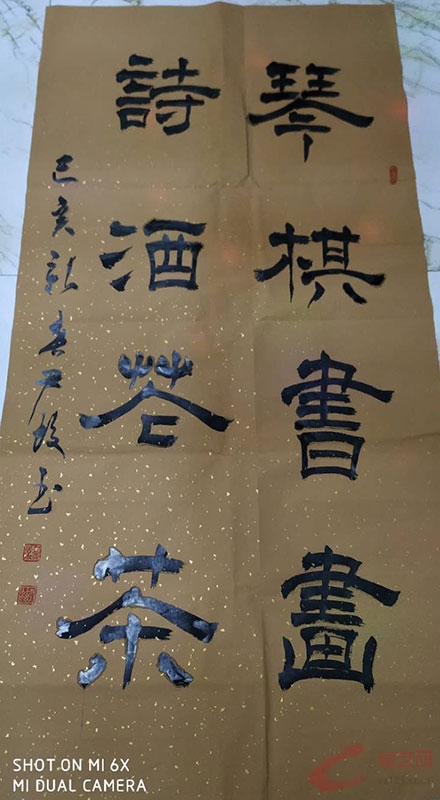 琴棋書畫
詩酒花茶
己亥新春尹玉
SHOT ON MI 6X
MI DUAL CAMERA